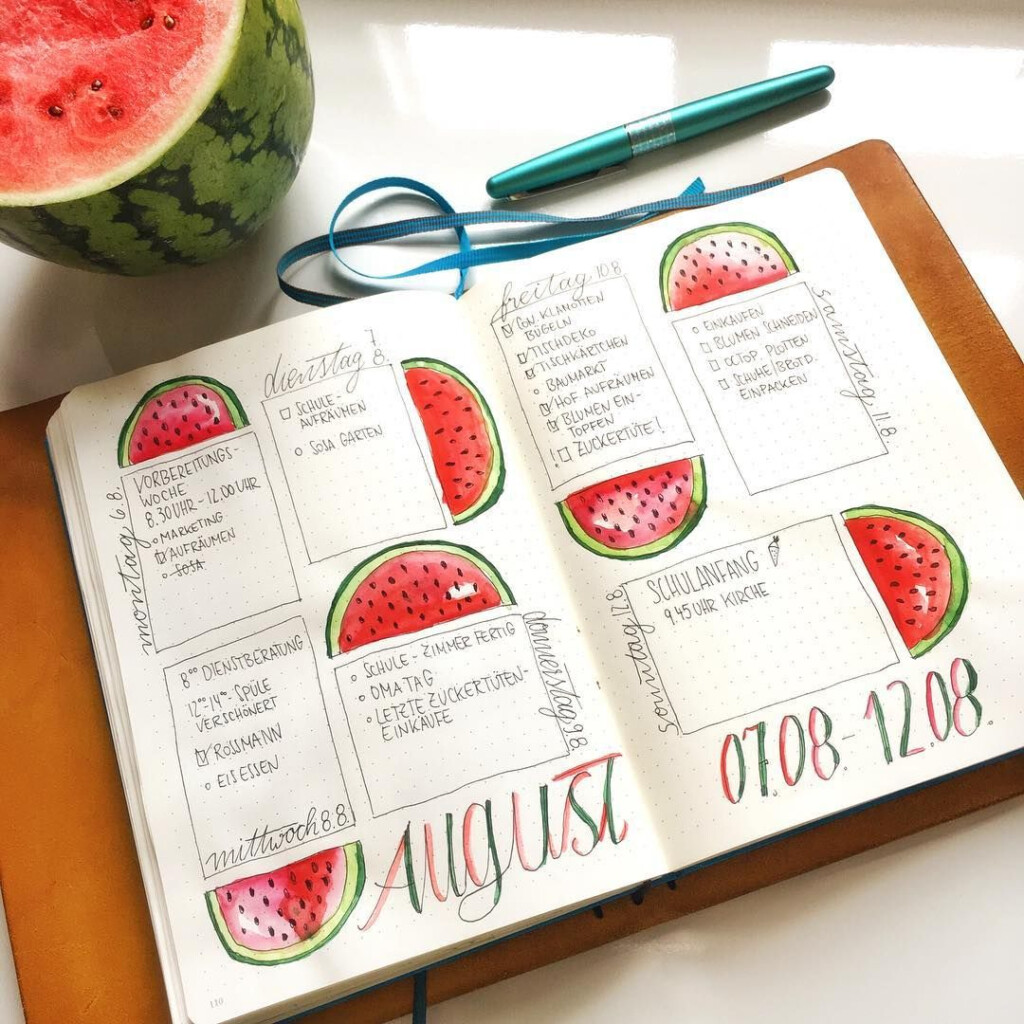 montag 6.8.
VORBEREITUNGS-
WOCHE
8.30 UHR - 12.00 UHR
MARKETING
AUFRÄUMEN
SOSA
dienstag 7.8.
SCHULE-
AUFRÄUMEN
SOSA GARTEN
8⁰⁰ DIENSTBERATUNG
12⁰⁰-14⁰⁰ - SPÜLE
VERSCHÖNERT
ROSSMANN
EIS ESSEN
mittwoch 8.8.
SCHULE - ZIMMER FERTIG
OMA TAG
LETZTE ZUCKERTÜTEN-
EINKÄUFE
donnerstag 9.8.
AUGUST
110
freitag 10.8
KLAMOTTEN
BÜGELN
TISCHDEKO
TISCHKÄRTCHEN
BAUMARKT
HOF AUFRÄUMEN
BLUMEN EIN-
TOPFEN
! ZUCKERTÜTE!
samstag 11.8.
EINKAUFEN
BLUMEN SCHNEIDEN
PLOTTEN
SCHUHE
EINPACKEN
sonntag 12.8
SCHULANFANG
9.45 UHR KIRCHE
07.08.-12.08.